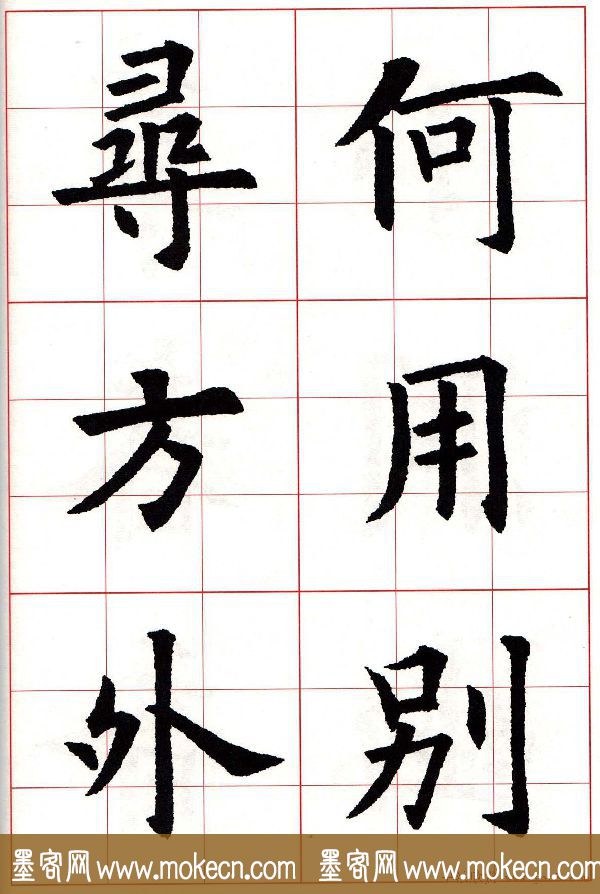 何用别
尋方外
墨客网 www.mokecn.com 墨客网 www.mokecn.com